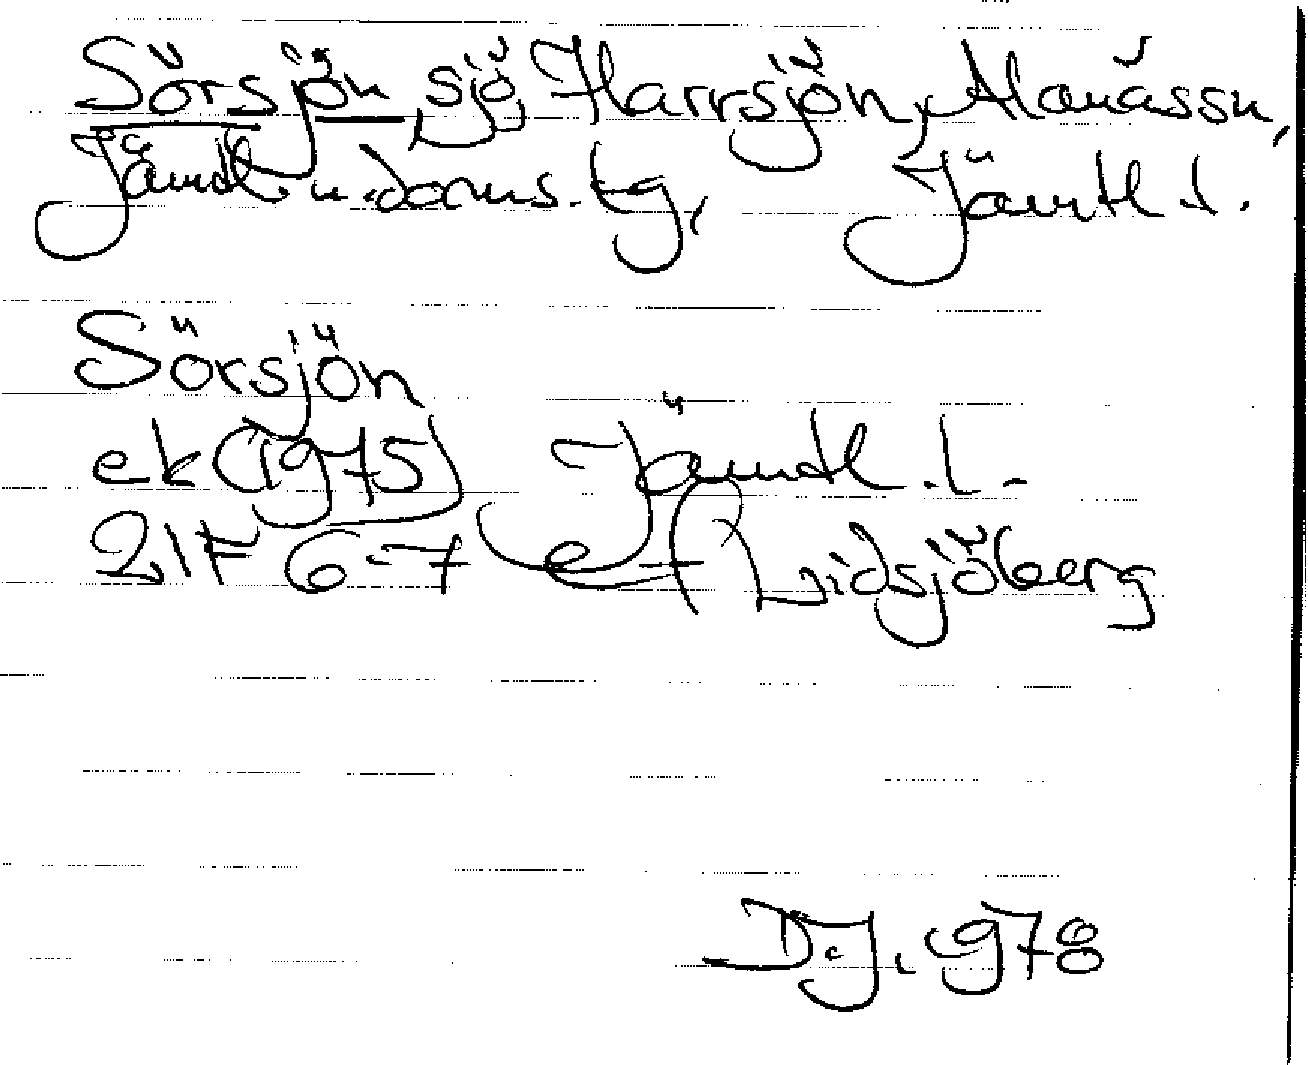 Sörsjön, sjö, Harrsjön, Alanässn,
Jämtl. n. doms. tg, Jämtl. l.
Sörsjön
ek (1975) Jämtl. l.
21F 6-7 e f (Lidsjöberg
D.J. 1978